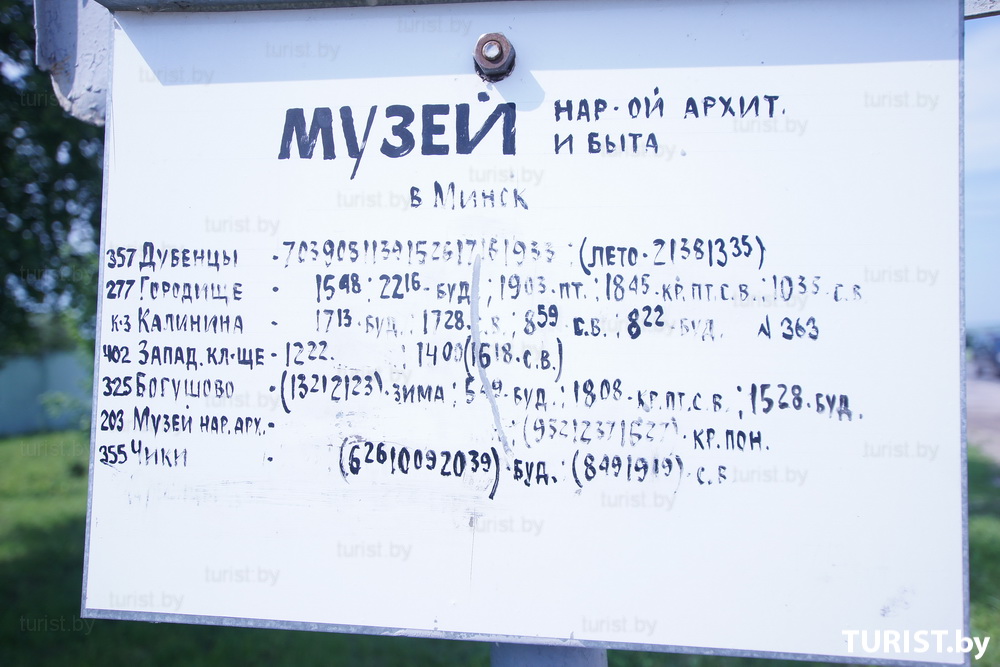 МУЗЕЙ НАР-ОЙ АРХИТ.
И БЫТА
в Минск
357 Дубенцы - (лето - 21381335)
277 Городище - 1548; 2216 - буд.; 1903 - пт.; 1845 - кр.пт.с.в. 1035 - с.в
к-з Калинина - 1713 - буд.; 1728 859 с.в.; 822 - буд. N 363
402 Запад. кл-ще - 1222. ; 1400 (1618 - с.в.)
325 Богушово - (13212123) - зима; буд.; 1808 - кр.пт.с.в.; 1528 - буд.
203 Музей нар.арх. - кр.пон.
355 Чики - (62610092039) - буд.; (8491919) - с.в
turist.by
TURIST.by